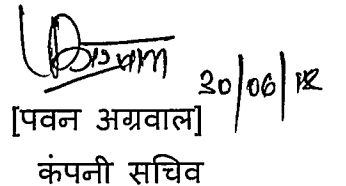 30/06/18
[पवन अग्रवाल]
कंपनी सचिव